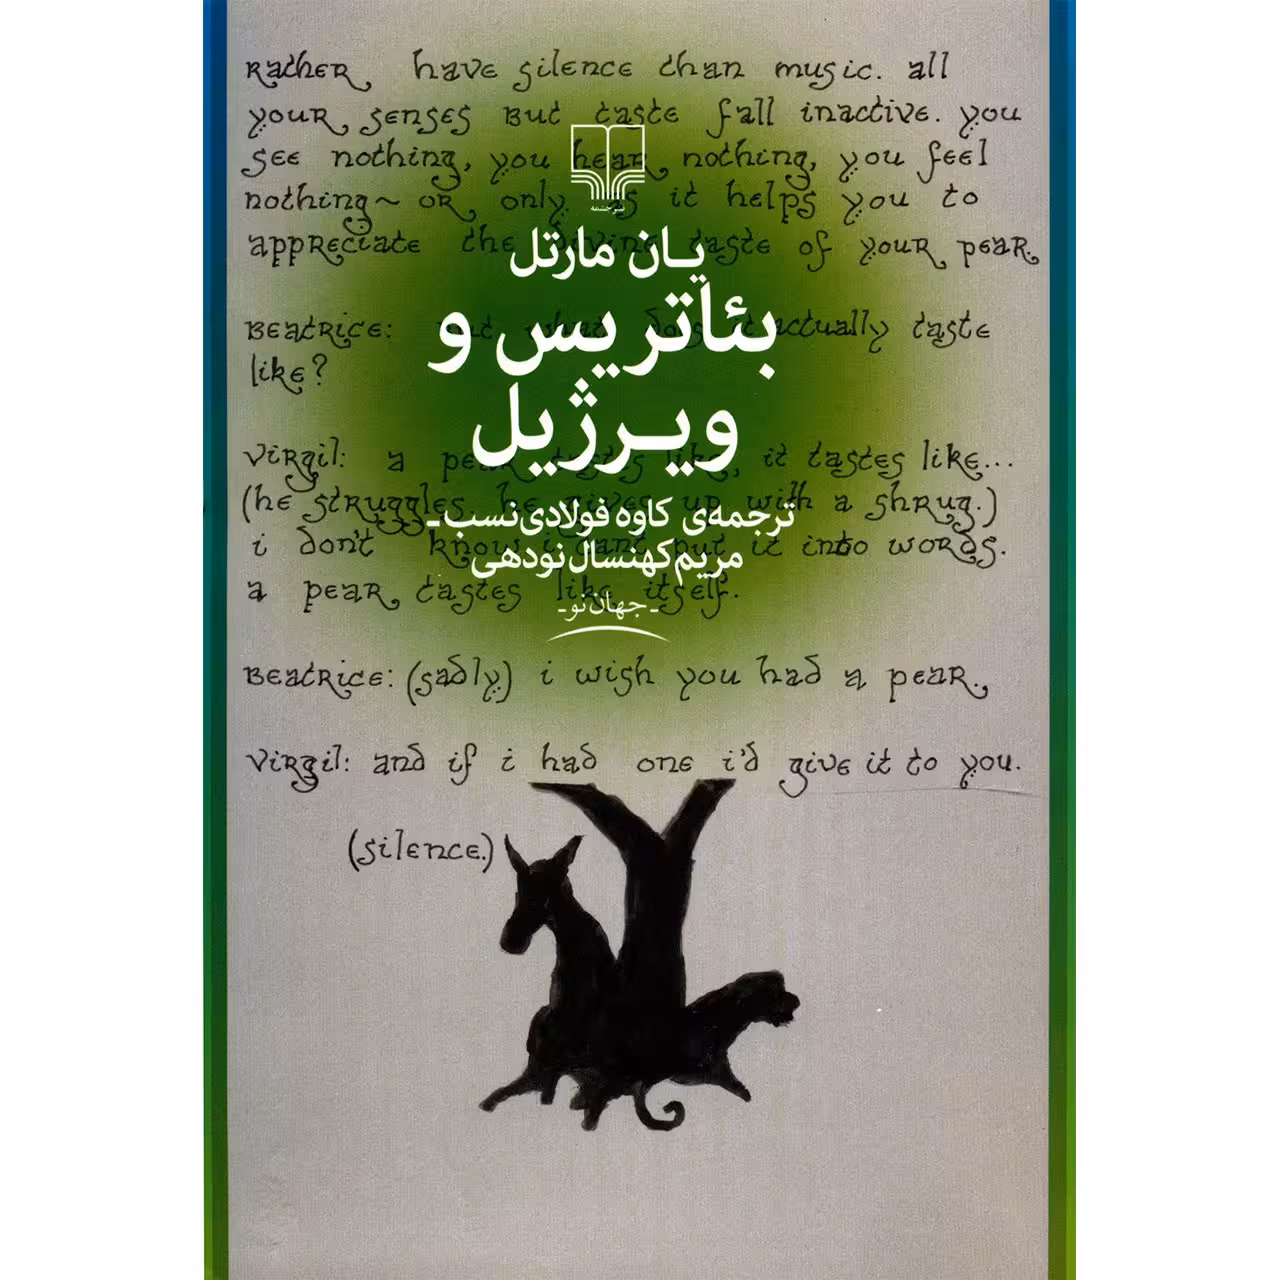 Rather have silence than music. all
your senses but taste fall inactive. you
see nothing, you hear nothing, you feel
nothing~ or only as it helps you to
appreciate the divine taste of your pear.
نشرچشمه
یان مارتل
Beatrice: but what does it actually taste
like?
بئاتریس و
ویرژیل
Virgil: a pear tastes like, it tastes like...
(he struggles. he gives up with a shrug.)
ترجمه‌ی کاوه فولادی‌نسب -
i don't know. i can't put it into words.
مریم کهنسال نودهی
a pear tastes like itself.
- جهان نو -
Beatrice: (sadly) i wish you had a pear.
Virgil: and if i had one i'd give it to you.
(silence.)